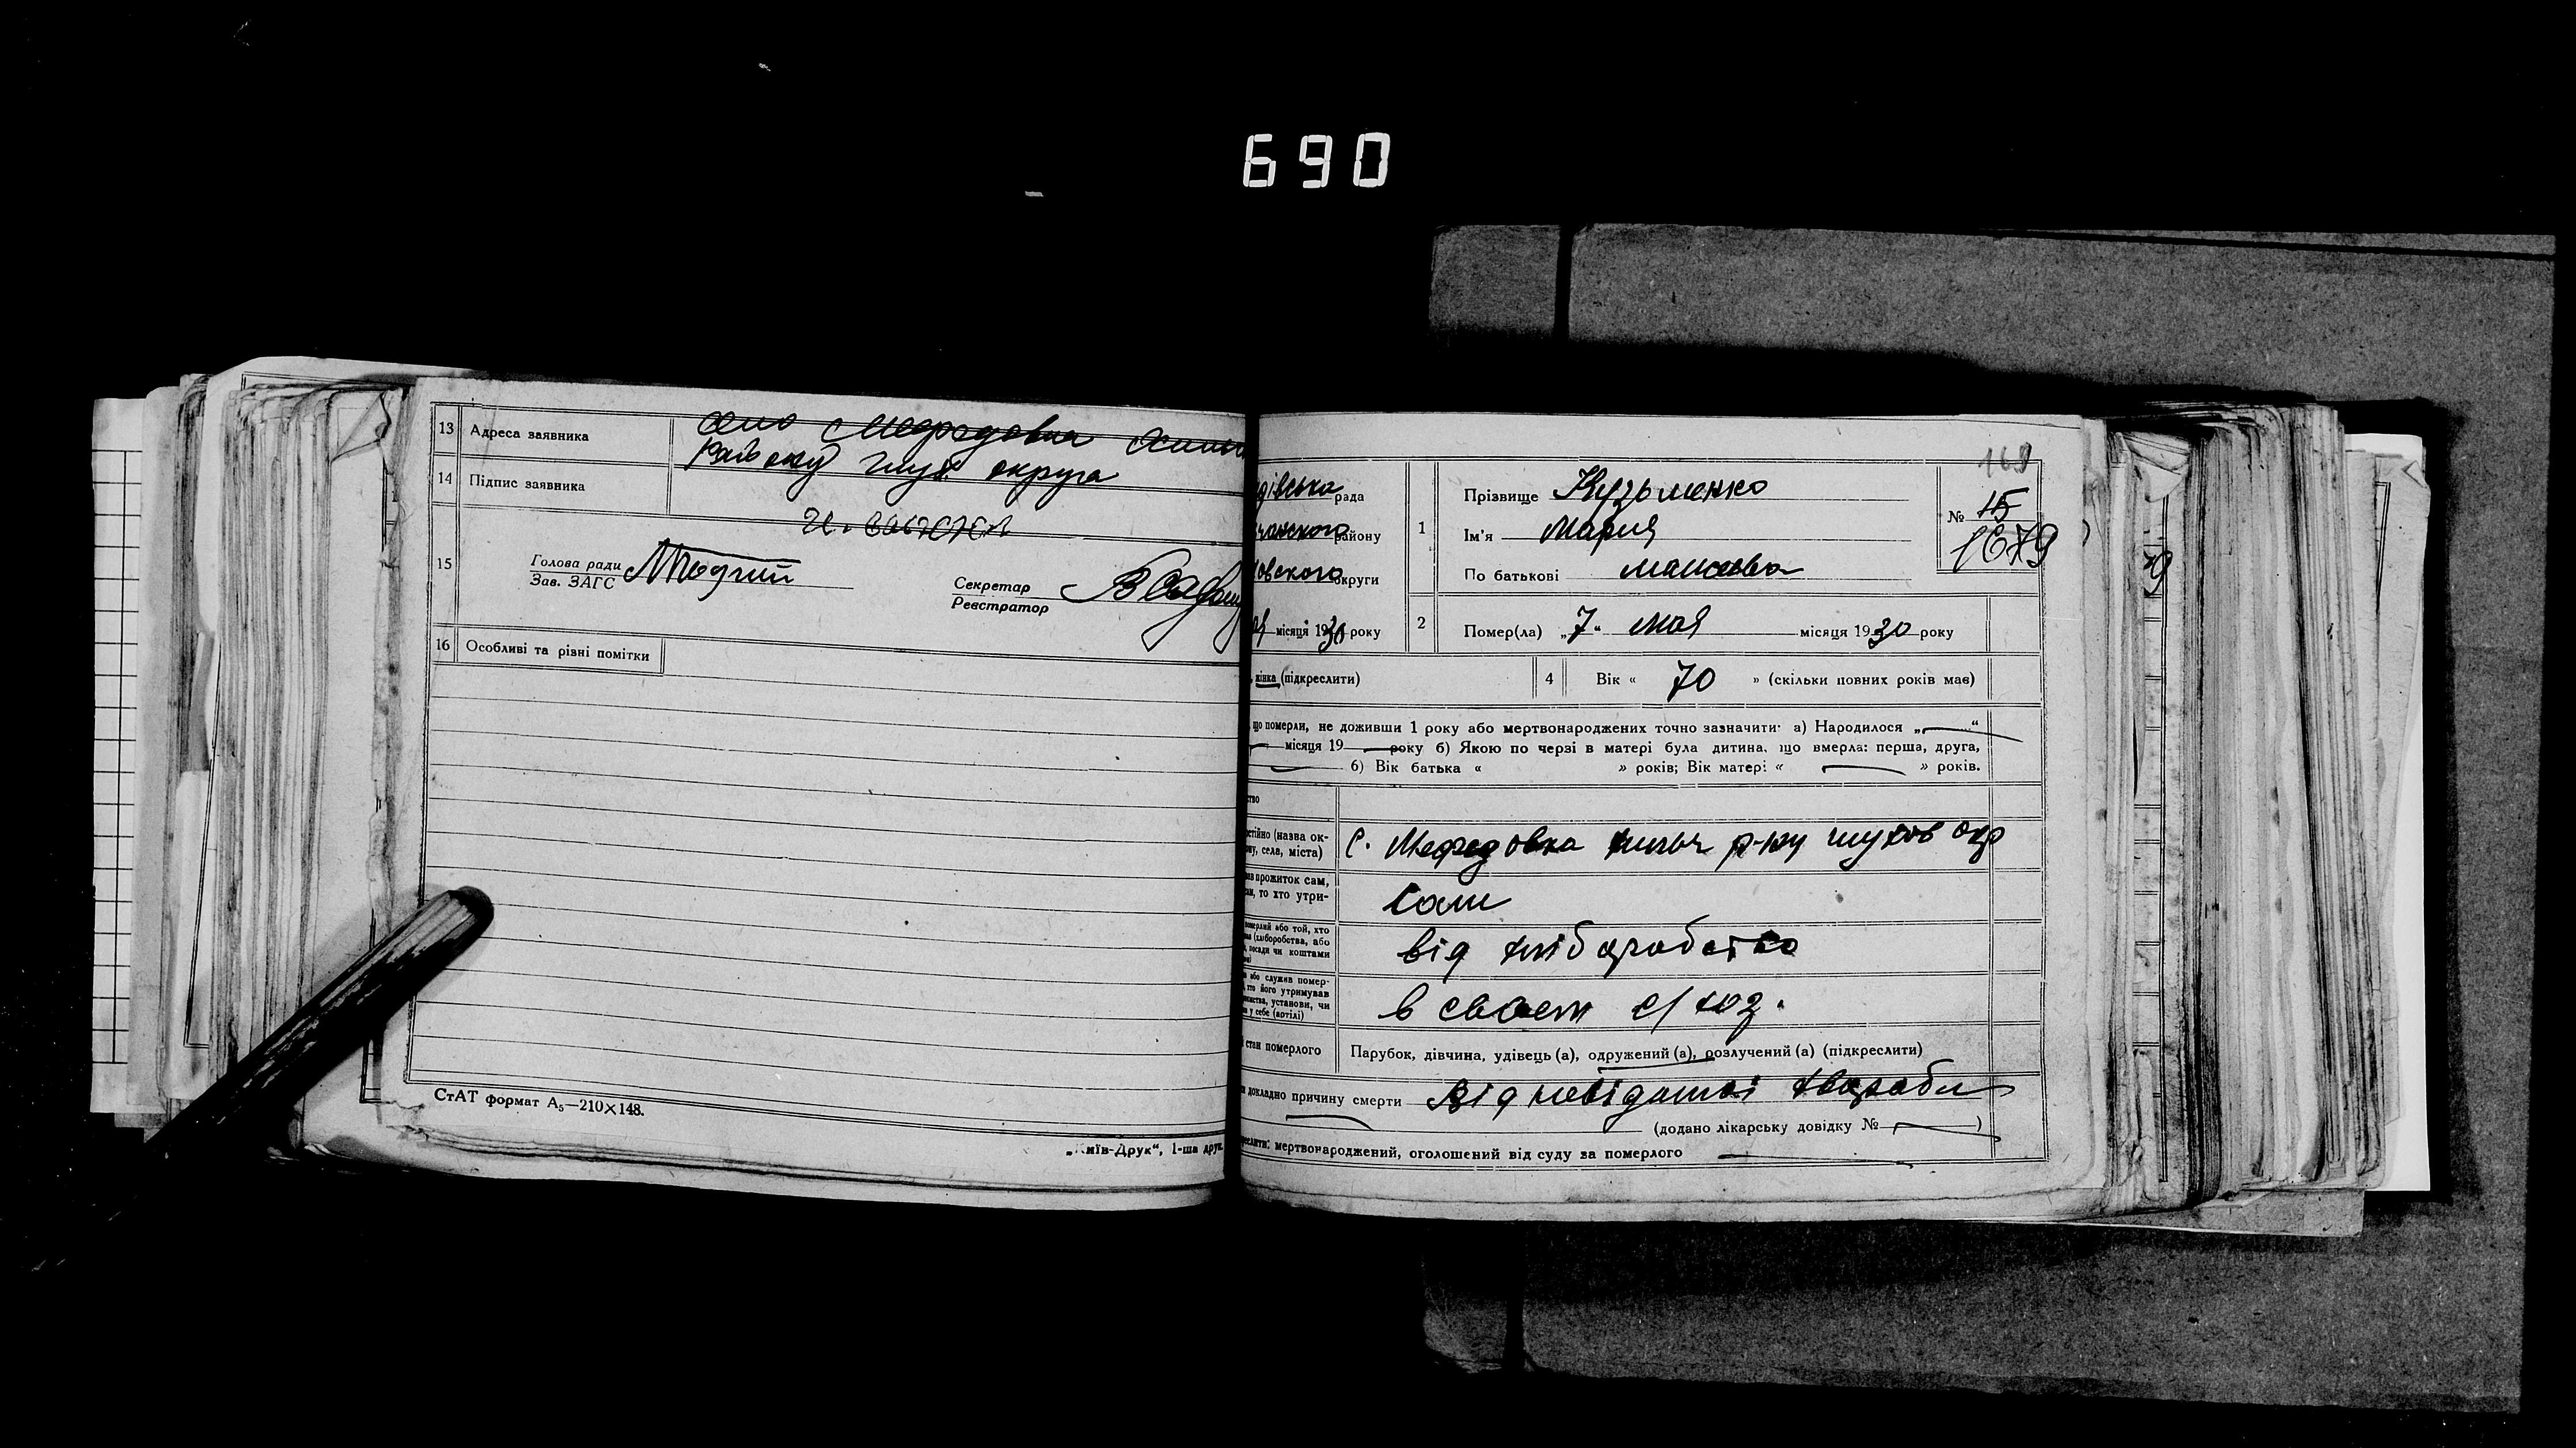 690
13 Адреса заявника село Мефедовка Хильч
Району Глух округа
14 Підпис заявника
15 Голова ради
Зав. ЗАГС
Секретар
Реєстратор
16 Особливі та різні помітки
СтАТ формат А5—210×148.
„Київ-Друк“, 1-ша друк.
169
дівська рада
чанского району
овского округи
місяця 1930 року
1 Прізвище Кузьменко
Ім'я Мария
По батькові
№ 15
1679
2 Помер(ла) „7“ мая місяця 1930 року
жінка (підкреслити)
4 Вік « 70 » (скільки повних років має)
що померли, не доживши 1 року або мертвонароджених точно зазначити: а) Народилося „ “
місяця 19 року б) Якою по черзі в матері була дитина, що вмерла: перша, друга,
б) Вік батька « » років; Вік матері « » років.
ство
остійно (назва ок-
ну, села, міста) с. Мефедовка хильч р-ну глухов окр
ав прожиток сам,
ам, то хто утри- сам
померлий або той, хто
ав (хліборобства, або
посади чи коштами від хліборобства
а або служив помер-
хто його утримував
ємства, установи, чи
и у себе (артілі) в своєм с/хоз.
стан померлого Парубок, дівчина, удівець (а), одружений (а), розлучений (а) (підкреслити)
докладно причину смерти Від невідомої хвороби
(додано лікарську довідку № )
еслити: мертвонароджений, оголошений від суду за померлого